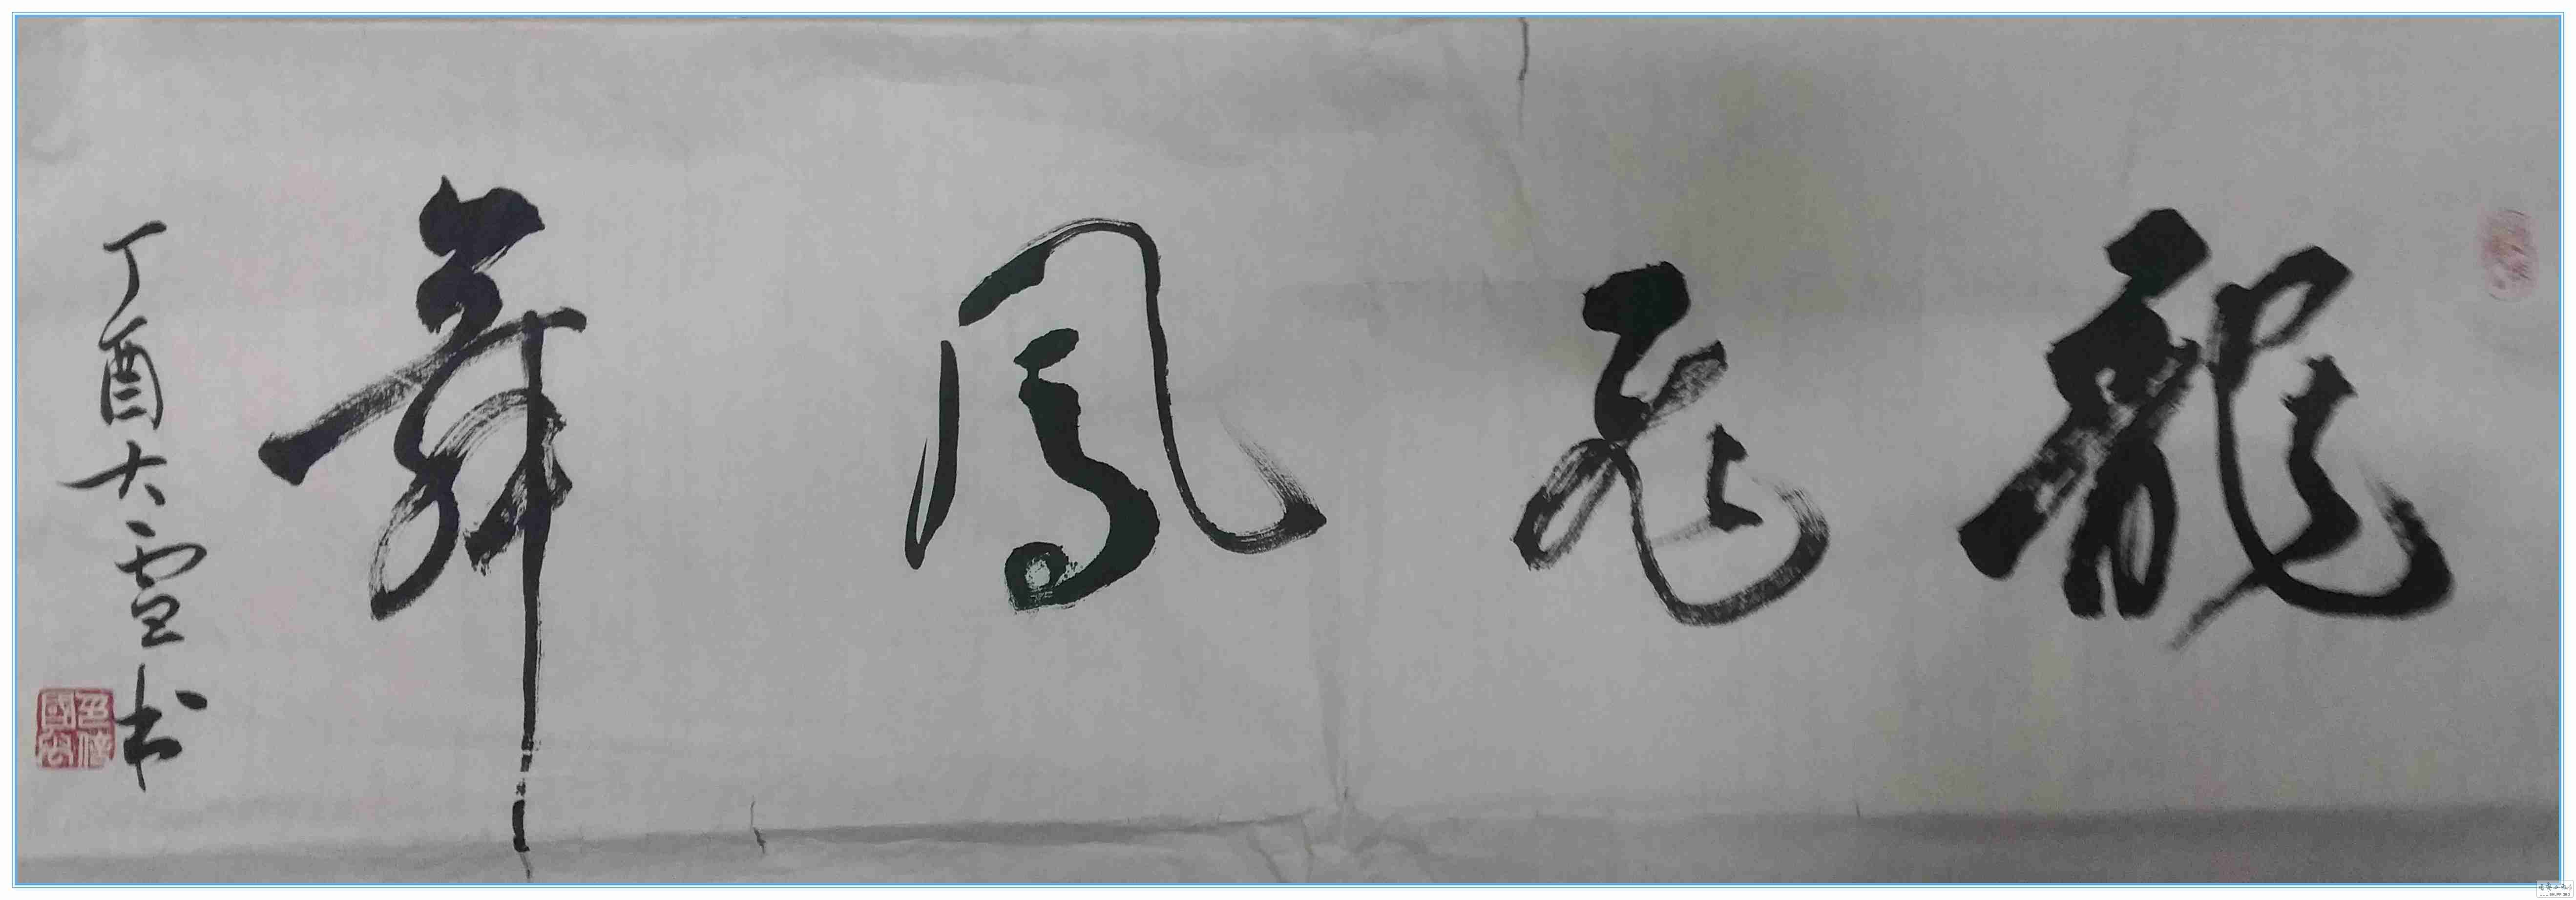 龍飛鳳舞
丁酉大雪书